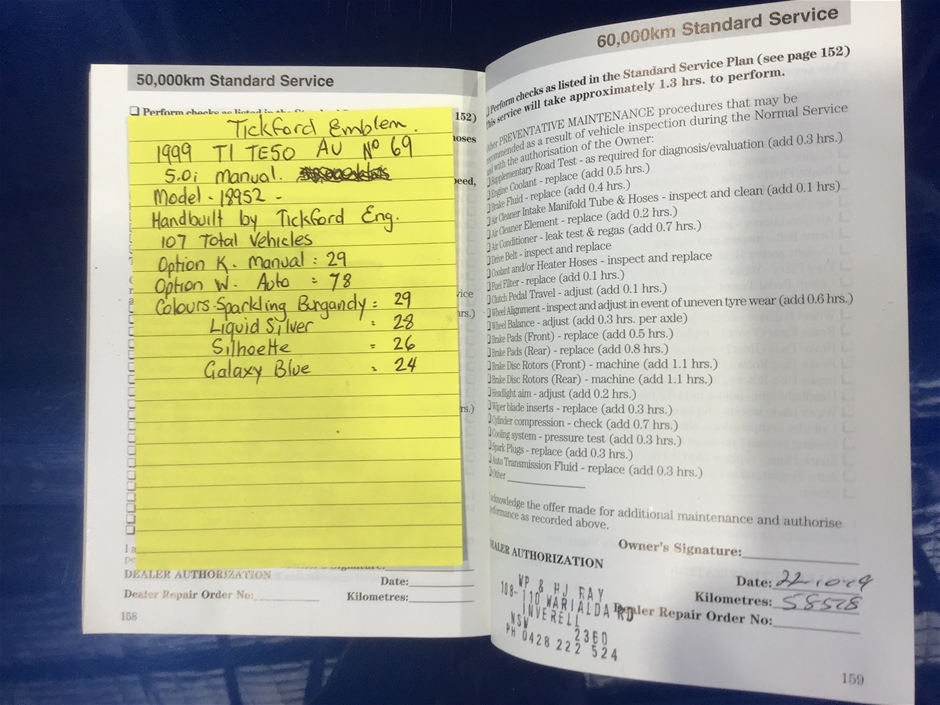 50,000km Standard Service
❑ Perform checks as listed in the
152)
Tickford Emblem.
1999 T1 TE50 AU Nº 69
5.0i manual.
Model - 18952 -
Handbuilt by Tickford Eng.
107 Total Vehicles
Option K. Manual : 29
Option W. Auto = 78
Colours-Sparkling Burgandy = 29
Liquid Silver : 28
Silhoette = 26
Galaxy Blue = 24
DEALER AUTHORIZATION
Date:
Dealer Repair Order No:
Kilometres:
158
60,000km Standard Service
❑Perform checks as listed in the Standard Service Plan (see page 152)
This service will take approximately 1.3 hrs. to perform.
Other PREVENTATIVE MAINTENANCE procedures that may be
recommended as a result of vehicle inspection during the Normal Service
and with the authorisation of the Owner:
❑Supplementary Road Test - as required for diagnosis/evaluation (add 0.3 hrs.)
❑Engine Coolant - replace (add 0.5 hrs.)
❑Brake Fluid - replace (add 0.4 hrs.)
❑Air Cleaner Intake Manifold Tube & Hoses - inspect and clean (add 0.1 hrs)
❑Air Cleaner Element - replace (add 0.2 hrs.)
❑Air Conditioner - leak test & regas (add 0.7 hrs.)
❑Drive Belt - inspect and replace
❑Coolant and/or Heater Hoses - inspect and replace
❑Fuel Filter - replace (add 0.1 hrs.)
❑Clutch Pedal Travel - adjust (add 0.1 hrs.)
❑Wheel Alignment - inspect and adjust in event of uneven tyre wear (add 0.6 hrs.)
❑Wheel Balance - adjust (add 0.3 hrs. per axle)
❑Brake Pads (Front) - replace (add 0.5 hrs.)
❑Brake Pads (Rear) - replace (add 0.8 hrs.)
❑Brake Disc Rotors (Front) - machine (add 1.1 hrs.)
❑Brake Disc Rotors (Rear) - machine (add 1.1 hrs.)
❑Headlight aim - adjust (add 0.2 hrs.)
❑Wiper blade inserts - replace (add 0.3 hrs.)
❑Cylinder compression - check (add 0.7 hrs.)
❑Cooling system - pressure test (add 0.3 hrs.)
❑Spark Plugs - replace (add 0.3 hrs.)
❑Auto Transmission Fluid - replace (add 0.3 hrs.)
❑Other
I acknowledge the offer made for additional maintenance and authorise
performance as recorded above.
Owner's Signature:
DEALER AUTHORIZATION
Date: 22-10-09
Kilometres: 58528
Dealer Repair Order No:
WP & HJ RAY
108-110 WARIALDA RD
INVERELL
NSW 2360
PH 0428 222 524
159